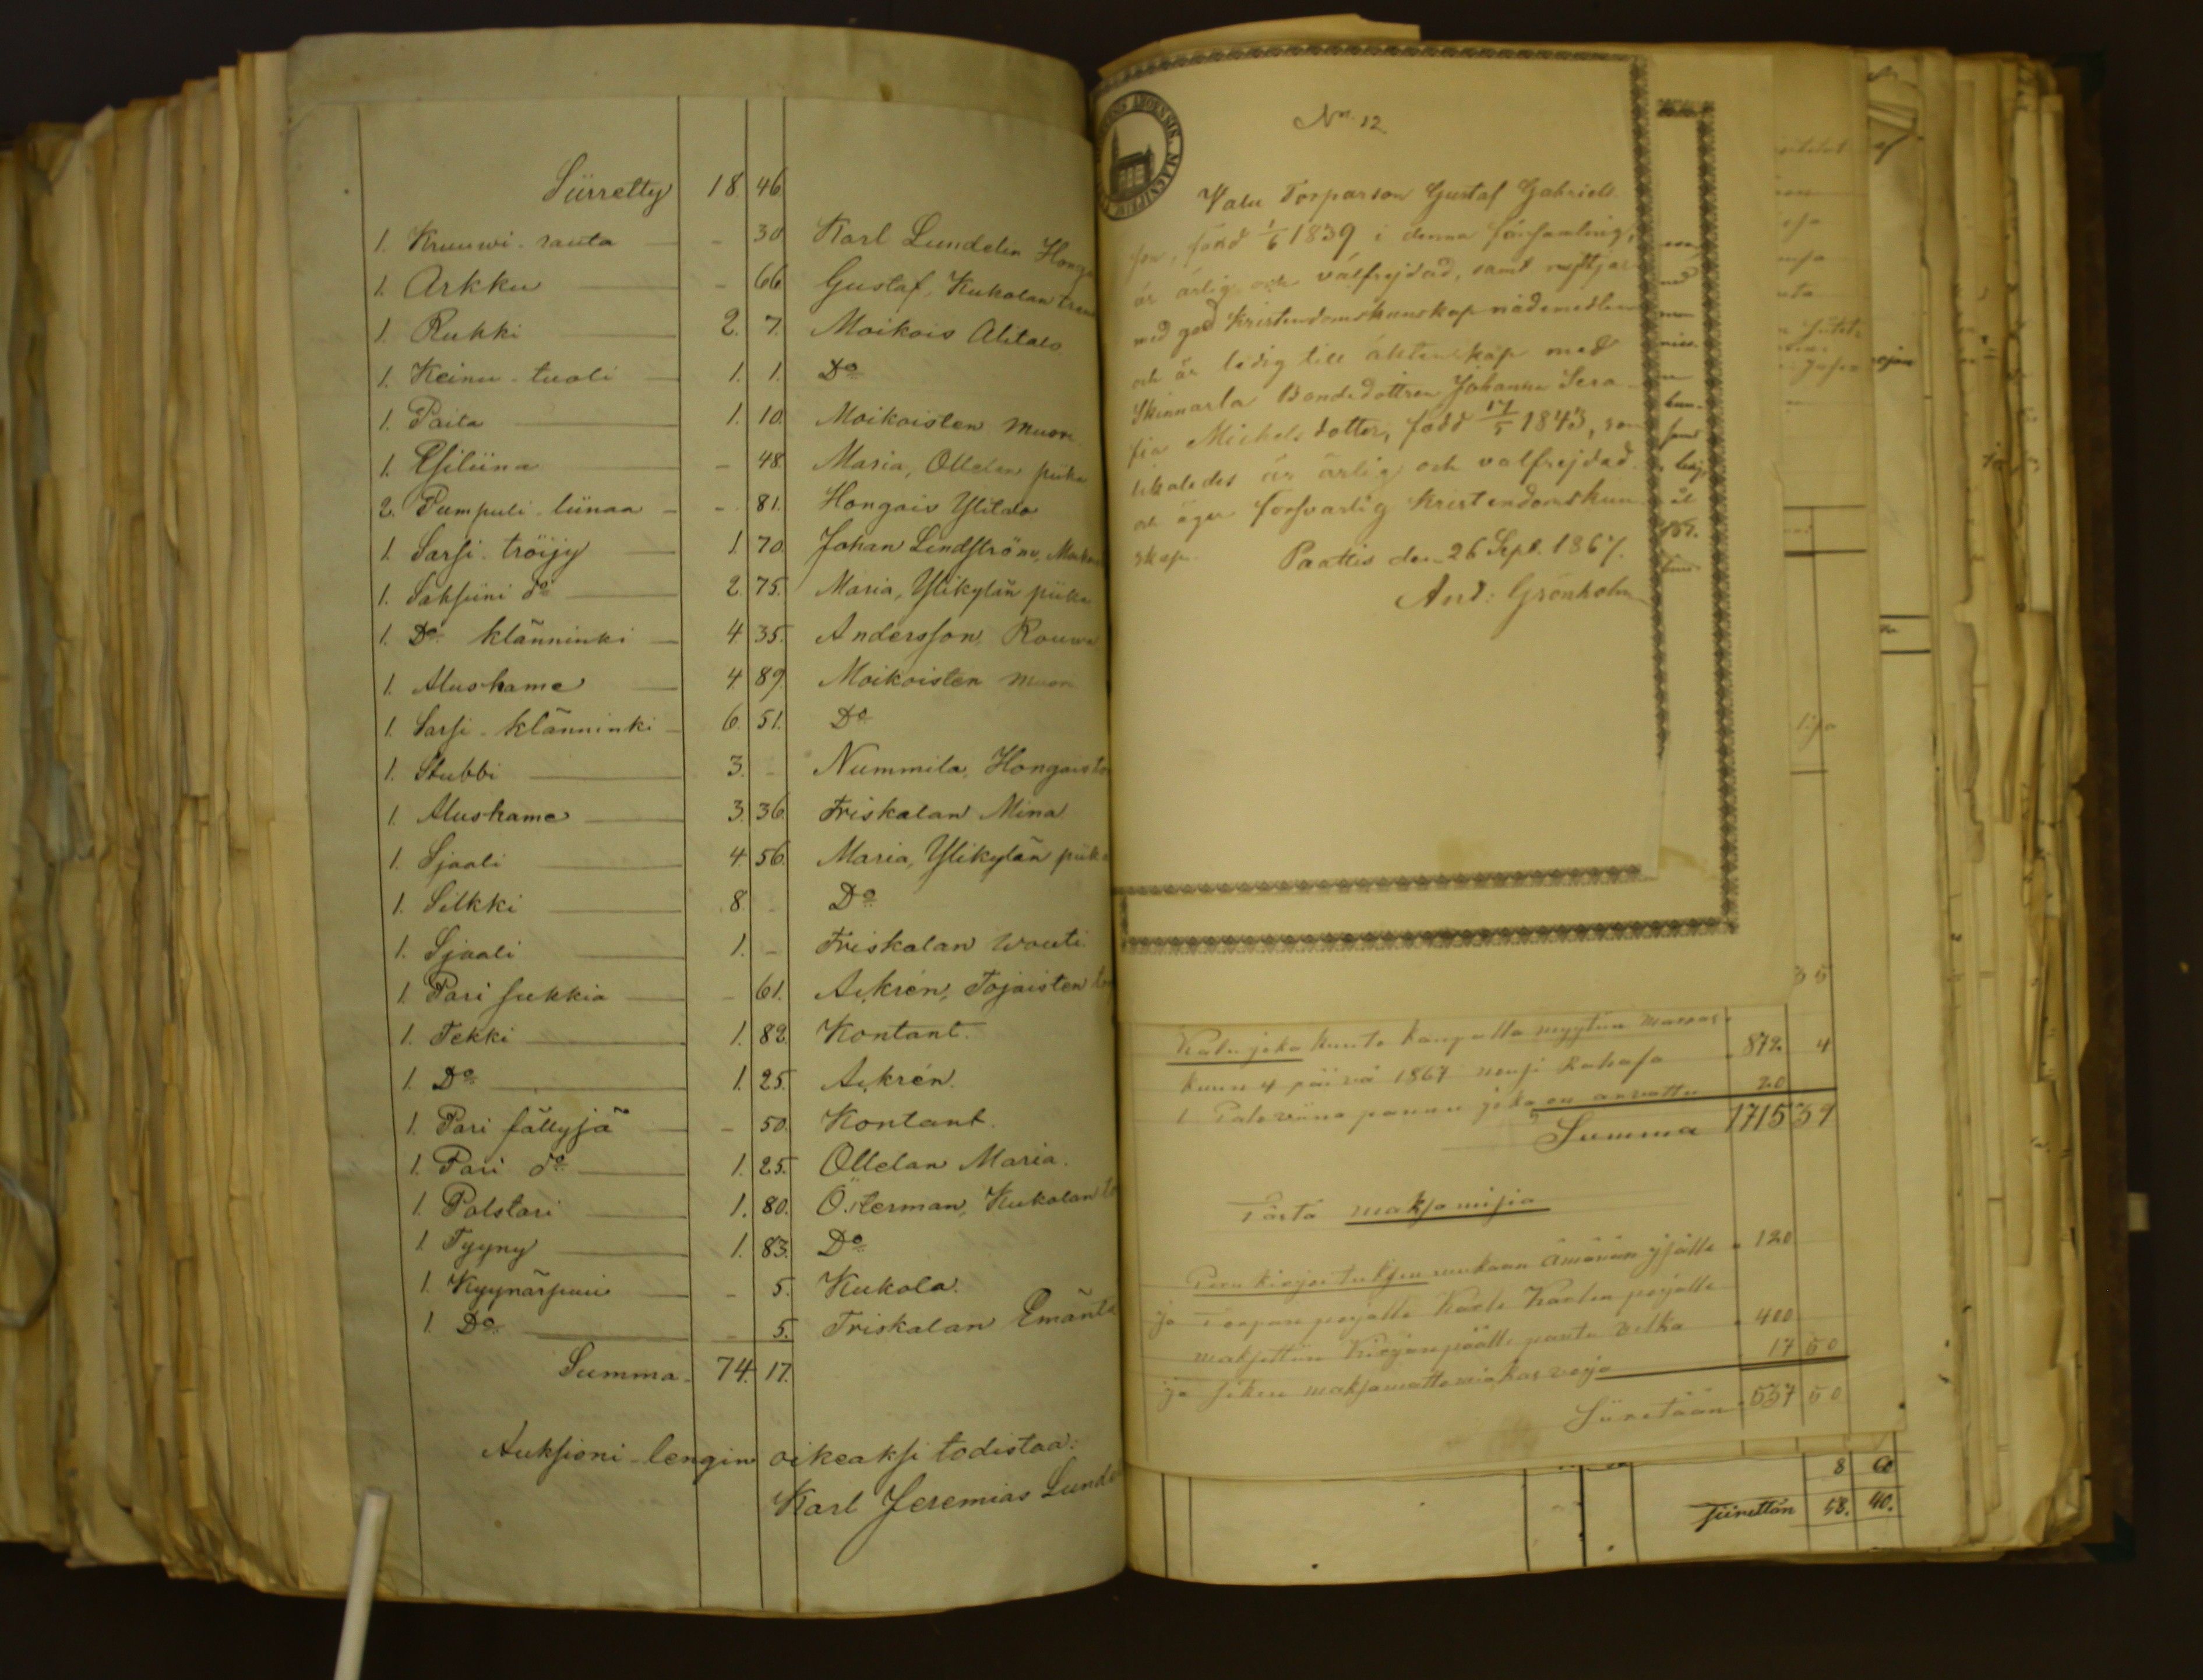 Siirretty 18. 46
1. Kruuwi-rauta — - 30 Karl Lundelin
1. Arkku — - 66 Gustaf, Kukolan
1. Rukki — 2. 7. Moikois Alitalo
1. Keinu-tuoli — 1. 1. Do
1. Paita — 1. 10. Moikoisten muori
1. Esiliina — - 48. Maria, Ollelan piika
2. Pumpuli-liinaa - - 81. Hongais Ylitalo
1. Sarsi-tröijy — 1. 70. Johan Lindström,
1. Saksiini do — 2. 75. Maria, Ylikylän piika
1. Do klänninki — 4. 35. Andersson, Rouwa
1. Alushame — 4. 89. Moikoisten muori
1. Sarsi-klänninki - 6. 51. Do
1. Stubbi — 3. - Nummila,
1. Alushame — 3. 36. Friskalan Mina
1. Sjaali — 4. 56. Maria, Ylikylän piika
1. Silkki — 8. - Do
1. Sjaali — 1. - Friskalan wouti
1. Pari sukkia — - 61. Ackrén, Tojaisten
1. Tekki — 1. 82. Kontant.
1. Do — 1. 25. Ackrén.
1. Pari fällyjä — - 50. Kontant.
1. Pari do — 1. 25. Ollelan Maria.
1. Polstari — 1. 80. Österman, Kukolan
1. Tyyny — 1. 83. Do
1. Kyynärpuu — - 5. Kukola.
1. Do — - 5. Friskalan Emäntä
Summa 74. 17.
Auksioni-lengin oikeaksi todistaa:
Karl Jeremias
No 12
Valu Torparson Gustaf Gabriels
son, född 1/6 1839 i denna församling,
är ärlig och välfrejdad, samt nyttjar
med god kristendomskunskap nådemedlen
och är ledig till äktenskap med
Skinnarla Bondedottren Johanna Sera-
fia Mickelsdotter, född 17/5 1843, som
likaledes är ärlig och välfrejdad
och äger försvarlig kristendomskun-
skap. Paattis den 26 Sept. 1867.
And: Grönholm
Kalu joka huuto kaupalla myytiin marras-
kuun 4 päivä 1867 nousi Rahasa 872 4
1 Paloviina pannu joka on arvattu 20
Summa 1715 37
Tästä maksamisia
Peru kirjoituksen mukaan ämmän ysälle 120
ja Torpan pojalle Kaarle Kaarlen pojalle
maksettiin Kirjan päälle pantu velka 400
ja siihen maksamattomia kasvoja 17 50
Siiretään 537 50
8 60
siirettän 58. 40.